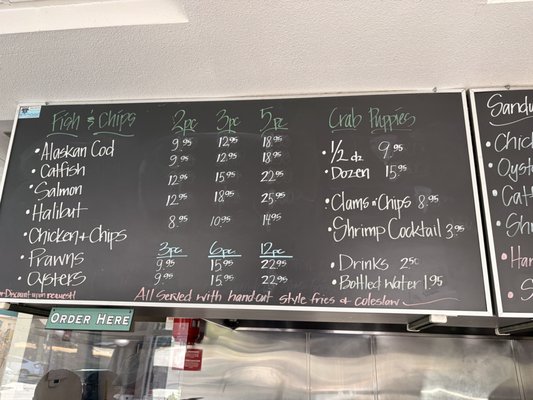 Fish & Chips 2pc 3pc 5pc
• Alaskan Cod 9.95 12.95 18.95
• Catfish 9.95 12.95 18.95
• Salmon 12.95 15.95 22.95
• Halibut 12.95 18.95 25.95
• Chicken + Chips 8.95 10.95 14.95
3pc 6pc 12pc
• Prawns 9.95 15.95 22.95
• Oysters 9.95 15.95 22.95
Discount upon request
All Served with hand-cut style fries & coleslaw
Crab Puppies
• 1/2 dz 9.95
• Dozen 15.95
• Clams n' Chips 8.95
• Shrimp Cocktail 3.95
• Drinks 2.50
• Bottled Water 1.95
ORDER HERE